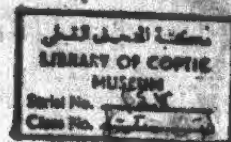 مكتبة المتحف القبطى
LIBRARY OF COPTIC
MUSEUM
Serial No.
Class No.